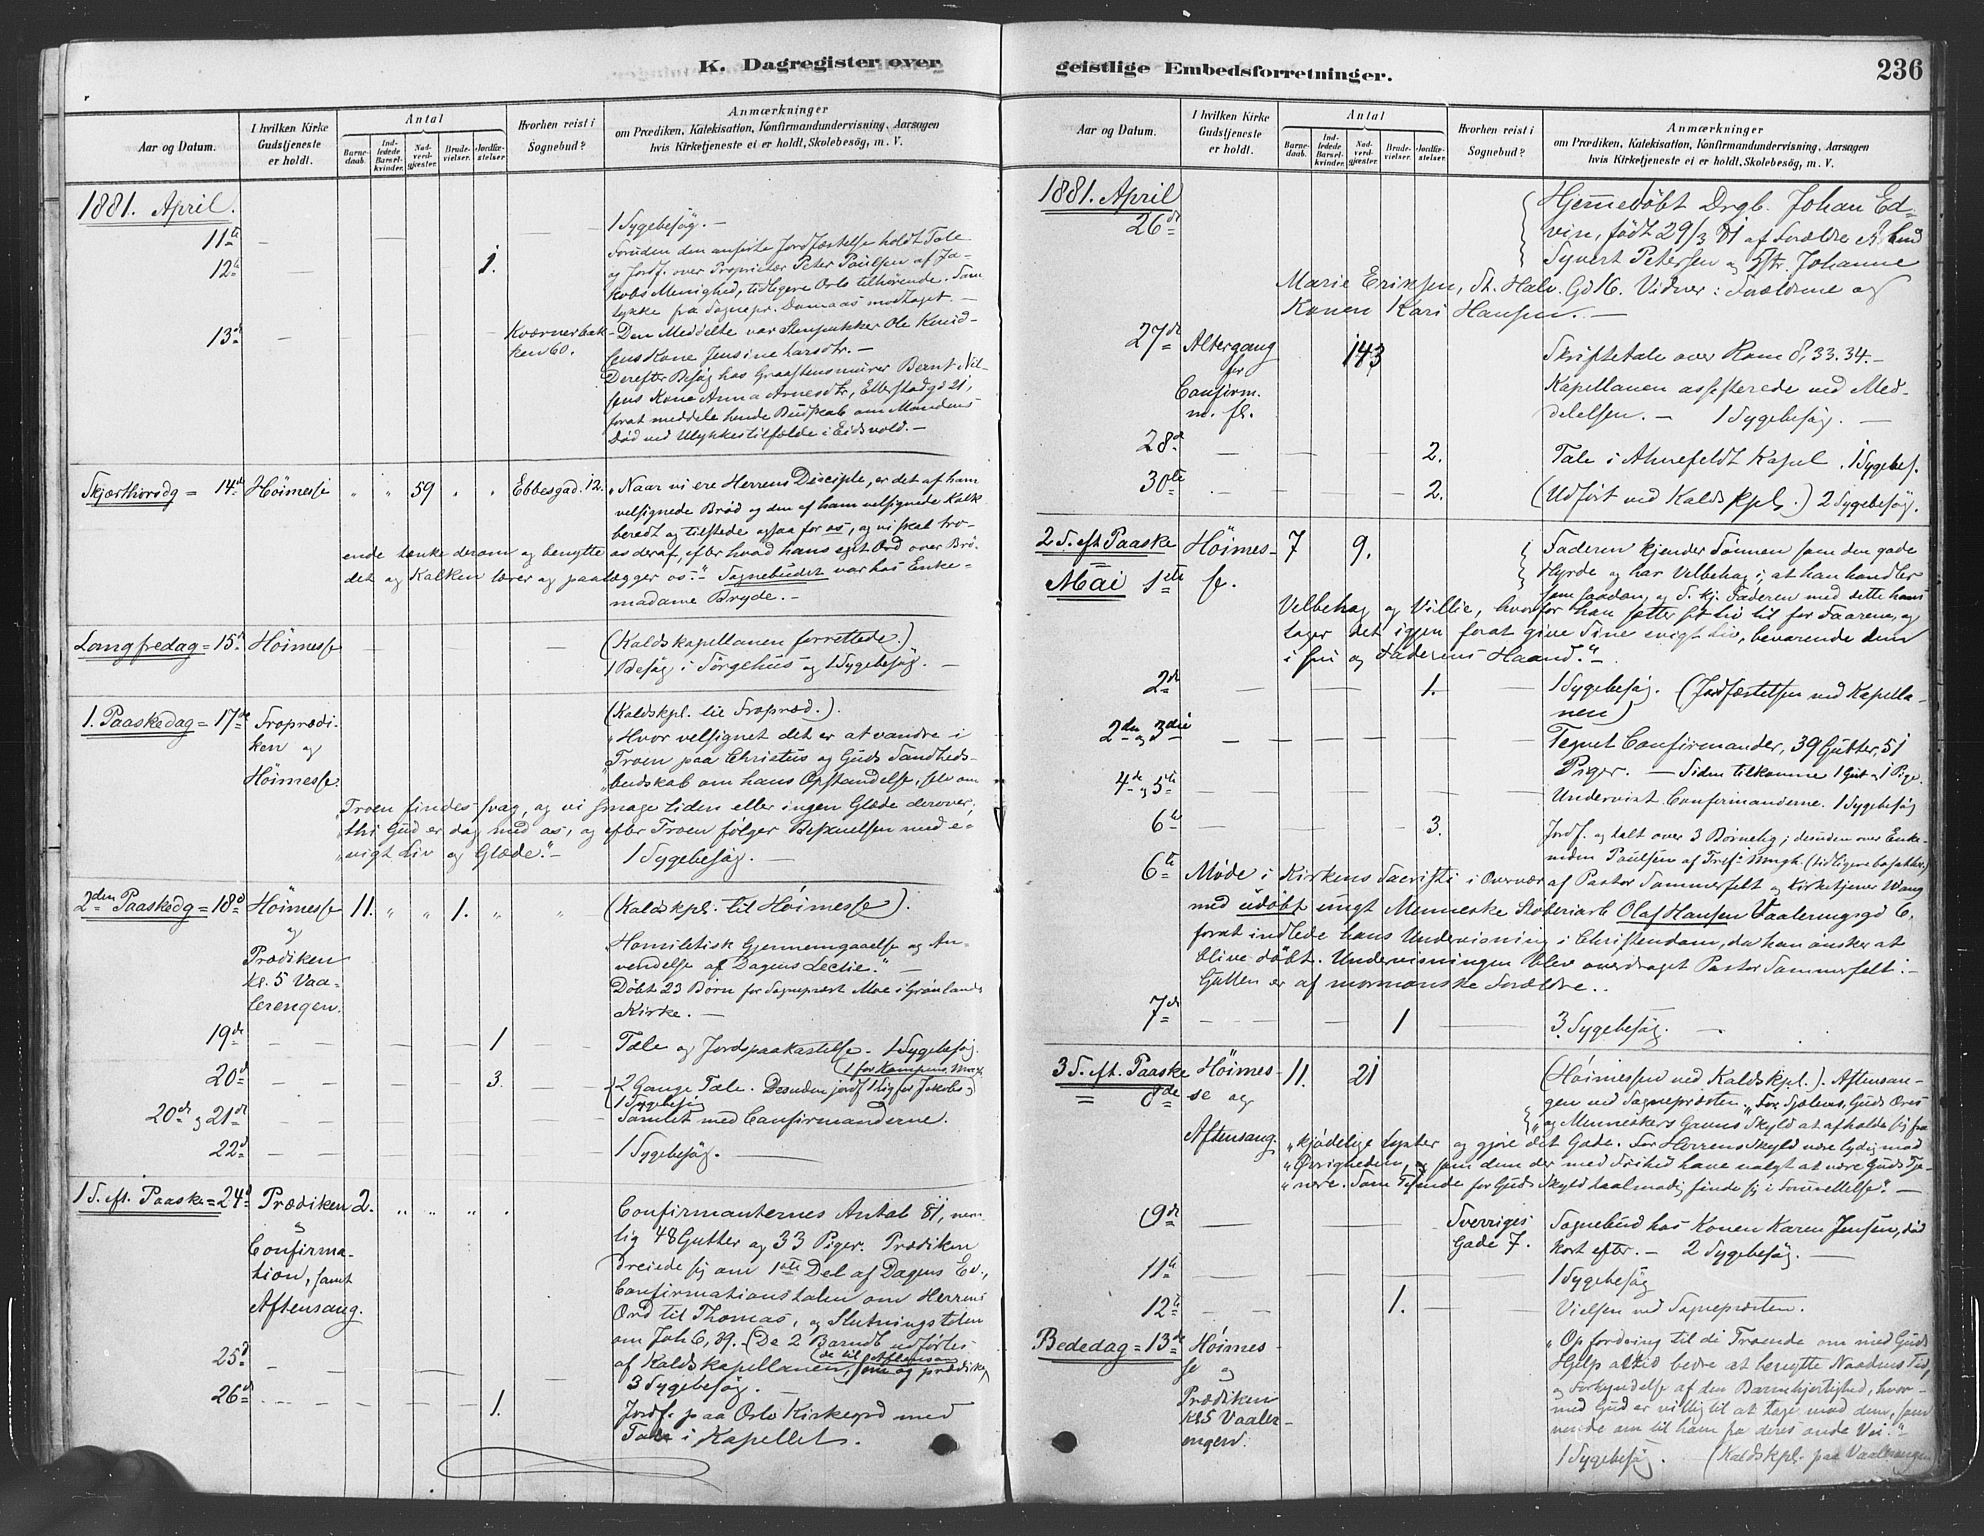 K. Dagregister over
Aar og Datum.
I hvilken Kirke Gudstjeneste er holdt.
Antal
Barnedaab.
Indledede Barselkvinder.
Nadverdgjæster.
Brudevielser.
Jordfæstelser
Hvorhen reist i Sognebud?
Anmærkninger
om Prædiken, Katekisation, Konfirmandundervisning, Aarsagen
hvis Kirketjeneste ei er holdt, Skolebesøg, m. V.
1881. April.
11te 1 Sygebesøg. —
12te 1. Foruden den anførte Jordfæstelse holdt Tale
og Jordf. over Proprietær Peter Paulsen af Ja-
kobs Menighed, tidligere Oslo tilhørende. Sam-
tykke fra Sognepr. modtaget. —
13de Kværnerbak-
ken 60. Den Meddelte var Stenpukker Ole Knud-
sens Kone Jensine Larsdtr. —
Derefter Besøg hos Graastensmurer Bernt Nil-
sens Kone Anna Arnesdtr, Ebbestadgd 21,
forat meddele hende Budskab om Mandens
Død ved Ulykkestilfælde i Eidsvold. —
Skjærthorsdg = 14de Høimesse " " 59 " " Ebbesgad. 12. "Naar vi ere Herrens Disciple, er det af ham
velsignede Brød og den af ham velsignede Kalk
beredt og tilstede ogsaa for os, og vi skal tro-
ende tænke derom og benytte os deraf, efter hvad hans eget Ord over Brø-
det og Kalken lærer og paalægger os." Sognebudet var hos Enke-
madame Bryde. —
Langfredag = 15de Høimesse (Kaldskapellanen forrettede.)
1 Besøg i Sørgehus og 1 Sygebesøg. —
1. Paaskedag = 17de Froprædi-
ken og
Høimesse. (Kaldskpl. til Fropræd.)
"Hvor velsignet det er at vandre i
Troen paa Christus og Guds Sandheds-
budskab om hans Opstandelse, selv om
Troen findes svag, og vi smage liden eller ingen Glæde derover,
thi Gud er dog med os, og efter Troen følger Beskuelsen med e-
vigt Liv og Glæde." —
1 Sygebesøg. —
2den Paaskedg = 18de Høimesse
og
Prædiken
kl. 5 Vaa-
lerengen. 11. " " 1. " " (Kaldskpl. til Høimesse).
Homiletisk Gjennemgaaelse og An-
vendelse af Dagens Lectie." —
Døbt 23 Børn for Sognepræst Moe i Grønlands
Kirke. —
19de 1 Tale og Jordspaakastelse. 1 Sygebesøg.
20de 3. (1 for Kampens Mngh.
2 Gange Tale. Desuden jordf. 1 Lig for Jakobs
1 Sygebesøg
20de og 21de Samlet med Confirmanderne.
22de 1 Sygebesøg. —
1 S. eft. Paaske = 24de Prædiken
Confirma-
tion, samt
Aftensang. 2. " " " " Confirmanternes Antal 81, nem-
lig 48 Gutter og 33 Piger. Prædiken
dreiede sig om 1ste Del af Dagens Ev.,
Confirmationstalen om Herrens
Ord til Thomas, og Slutningstalen
om Joh 6, 39. (De 2 Barnedb udførtes
af Kaldskapellanen, de til Aftensang som og prædike.)
25de 3 Sygebesøg. —
26de 1. Jordf. paa Oslo Kirkegrd med
Tale i Kapellet.
geistlige Embedsforretninger.
236
Aar og Datum.
I hvilken Kirke Gudstjeneste er holdt.
Antal
Barnedaab.
Indledede Barselkvinder.
Nadverdgjæster.
Brudevielser.
Jordfæstelser.
Hvorhen reist i Sognebud?
Anmærkninger
om Prædiken, Katekisation, Konfirmandundervisning, Aarsagen
hvis Kirketjeneste ei er holdt, Skolebesøg, m. V.
1881. April
26de Hjemmedøbt Drgb. Johan Ed-
vin, født 29/3 81 af Forældre
Syvert Petersen og Hstr. Johanne
Marie Eriksen, St. Halv. Gd 16. Vidner: Forældrene og
Konen Kari Hansen. —
27de Altergang
for
Confirm.
m. fl. 143 Skriftetale over Rom 8, 33.34. —
Kapellanen assisterede ved Med-
delelsen. — 1 Sygebesøg. —
28de 2. Tale i Ahnefeldt Kapel. 1 Sygebes.
30te 2. (Udført ved Kaldskpl.) 2 Sygebesøg.
2 S. eft Paaske
Mai 1ste Høimes-
se. 7 9. "Faderen kjender Sønnen som den gode
Hyrde og har Velbehag i, at han handler
som saadan, og S. kj. Faderen med dette hans
Velbehag og Villie, hvorfor han sætter sit Liv til for Faarene, og
tager det igjen forat give Sine evigt Liv, bevarende dem
i sin og Faderens Haand." —
2de 1. 1 Sygebesøg. (Jordfæstelsen ved Kapella-
nen)
2den og 3die Tegnet Confirmander, 39 Gutter, 51
Piger. — Siden tilkomne 1 Gut og 1 Pige.
4de og 5te Undervist Confirmanderne. 1 Sygebesøg
6te 3. Jordf. og talt over 3 Børnelig; desuden over Enke-
Paulsen af Tref. Mngh. (tidligere bosat her)
6te Møde i Kirkens Sacristi i Overvær af Pastor Sommerfelt og Kirketjener Wang
med udøbt ungt Menneske Støberiarb Olaf Hansen Vaaleringsgd 6,
forat indlede hans Undervisning i Christendom, da han ønsker at
blive døbt. Undervisningen blev overdraget Pastor Sommerfelt. —
Gutten er af mormonske Forældre.
7de 1 3 Sygebesøg. —
3 S. eft. Paaske
8de Høimes-
se og
Aftensang. 11. 21 (Høimessen ved Kaldskpl.). Aftensan-
gen ved Sognepræsten. "For Sjælens, Guds Æres
og Menneskers Gavns Skyld at afholde sig fra
kjødelige Lyster og gjøre det Gode. For Herrens Skyld være lydig mod
Øvrigheden, og som dem der med Frihed have valgt at være Guds Tje-
nere. Som Tjenende for Guds Skyld taalmodig finde sig i Forurettelse." —
9de Sverriges
Gade 7. Sognebud hos Konen Karen Jensen, død
kort efter. — 2 Sygebesøg. —
11te 1 Sygebesøg
12te 1. Vielsen ved Sognepræsten.
Bededag = 13de Høimes-
se og
Prædiken
Kl 5 Vaaler-
engen. "Opfordring til de Troende om med Guds
Hjælp altid bedre at benytte Naadens Tid,
og Forkyndelse af den Barmhjertighed, hvor-
med Gud er villig til at tage mod dem, som
vende om til ham fra deres onde Vei."
1 Sygebesøg. (Kaldskpl. paa Vaalerengen)